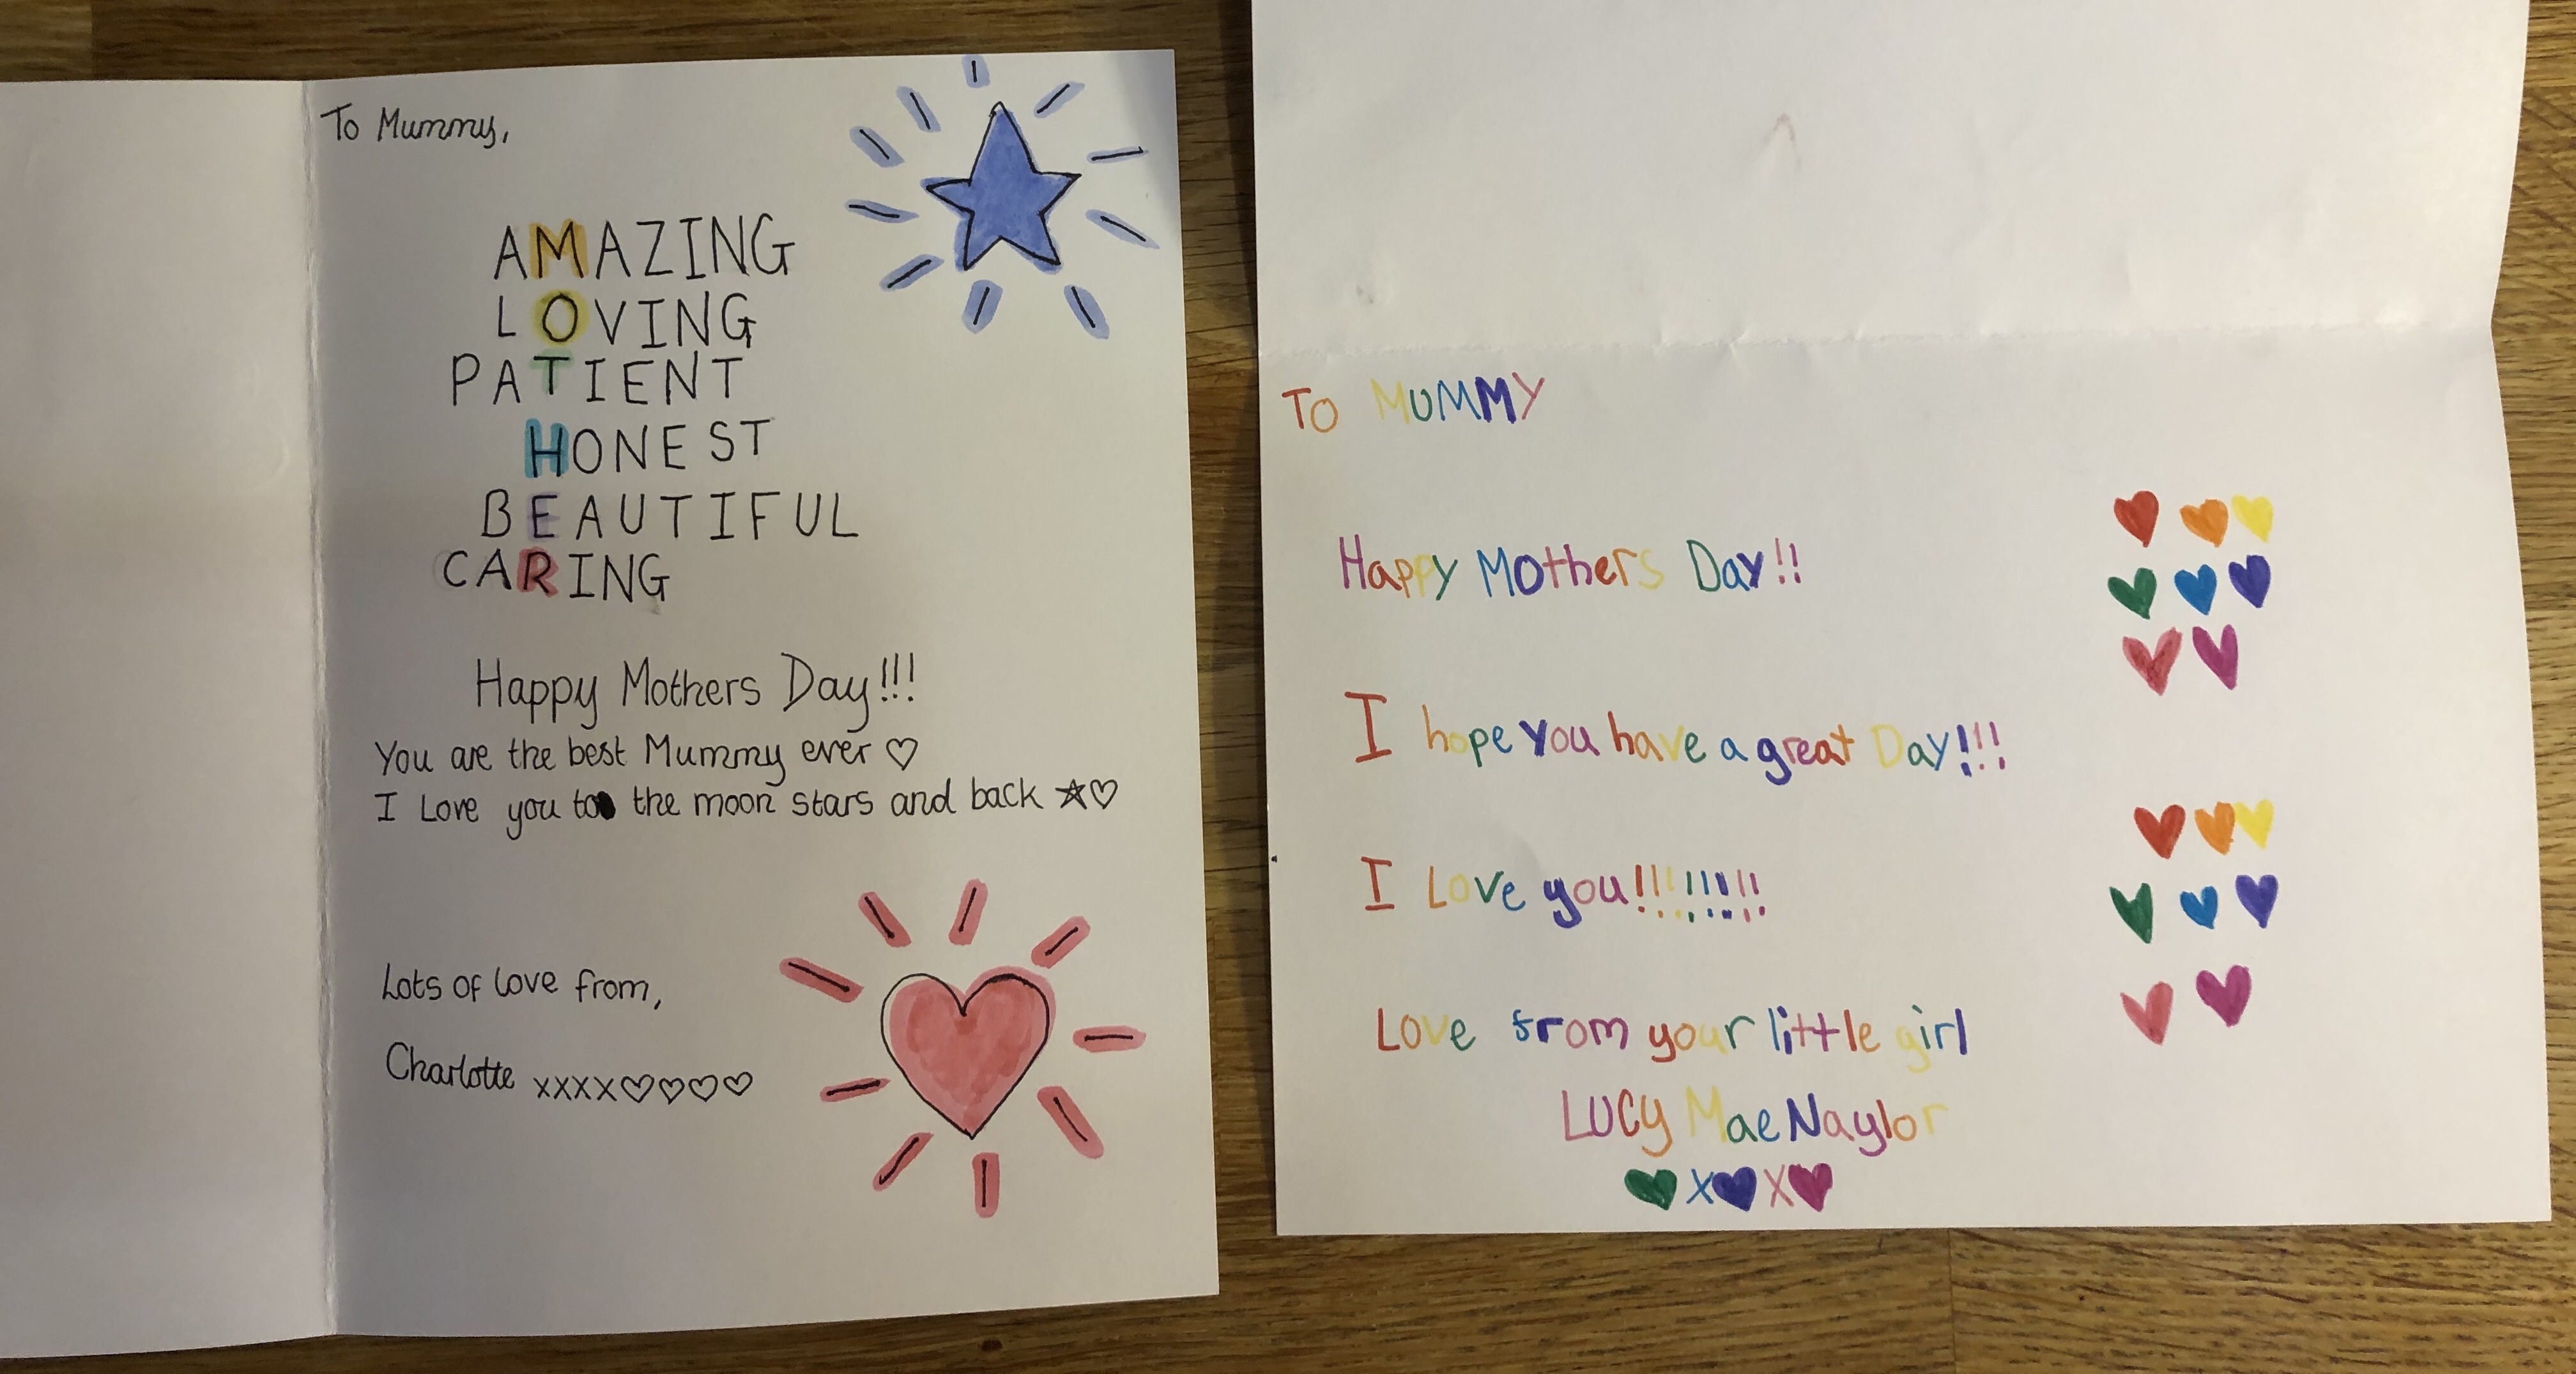 To Mummy,
AMAZING
LOVING
PATIENT
HONEST
BEAUTIFUL
CARING
Happy Mothers Day!!!
You are the best Mummy ever ♡
I Love you to the moon stars and back ☆♡
Lots of love from,
Charlotte xxxx♡♡♡♡
To MUMMY
Happy Mothers Day!!
I hope you have a great Day!!!
I Love you!!!!!!!!
Love from your little girl
LUCy Mae Naylor
♥x♥x♥